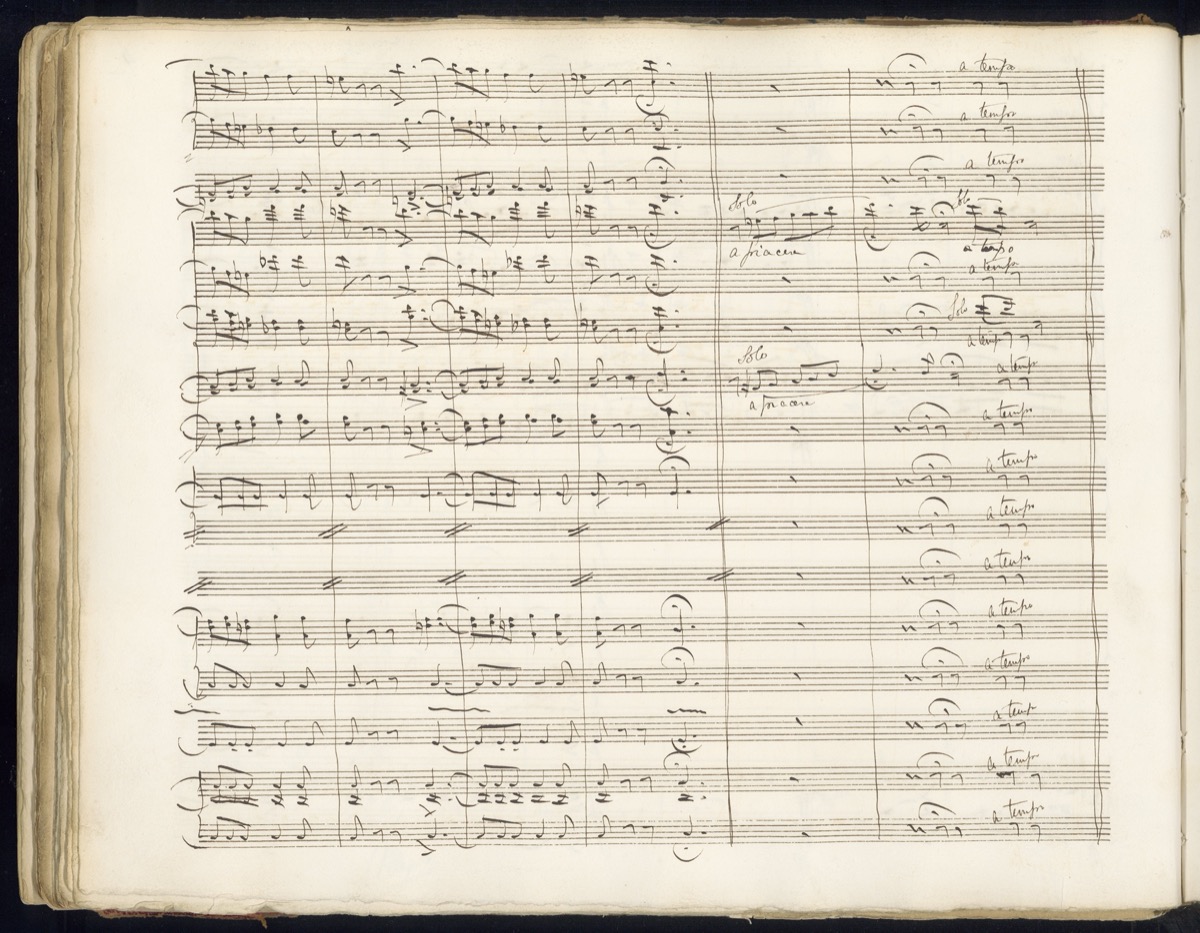 a tempo
a tempo
a tempo
Solo
Solo
a piacere
a tempo
a tempo
Solo
a tempo
Solo
a tempo
a piacere
a tempo
a tempo
a tempo
a tempo
a tempo
a tempo
a temp
a tempo
a tempo